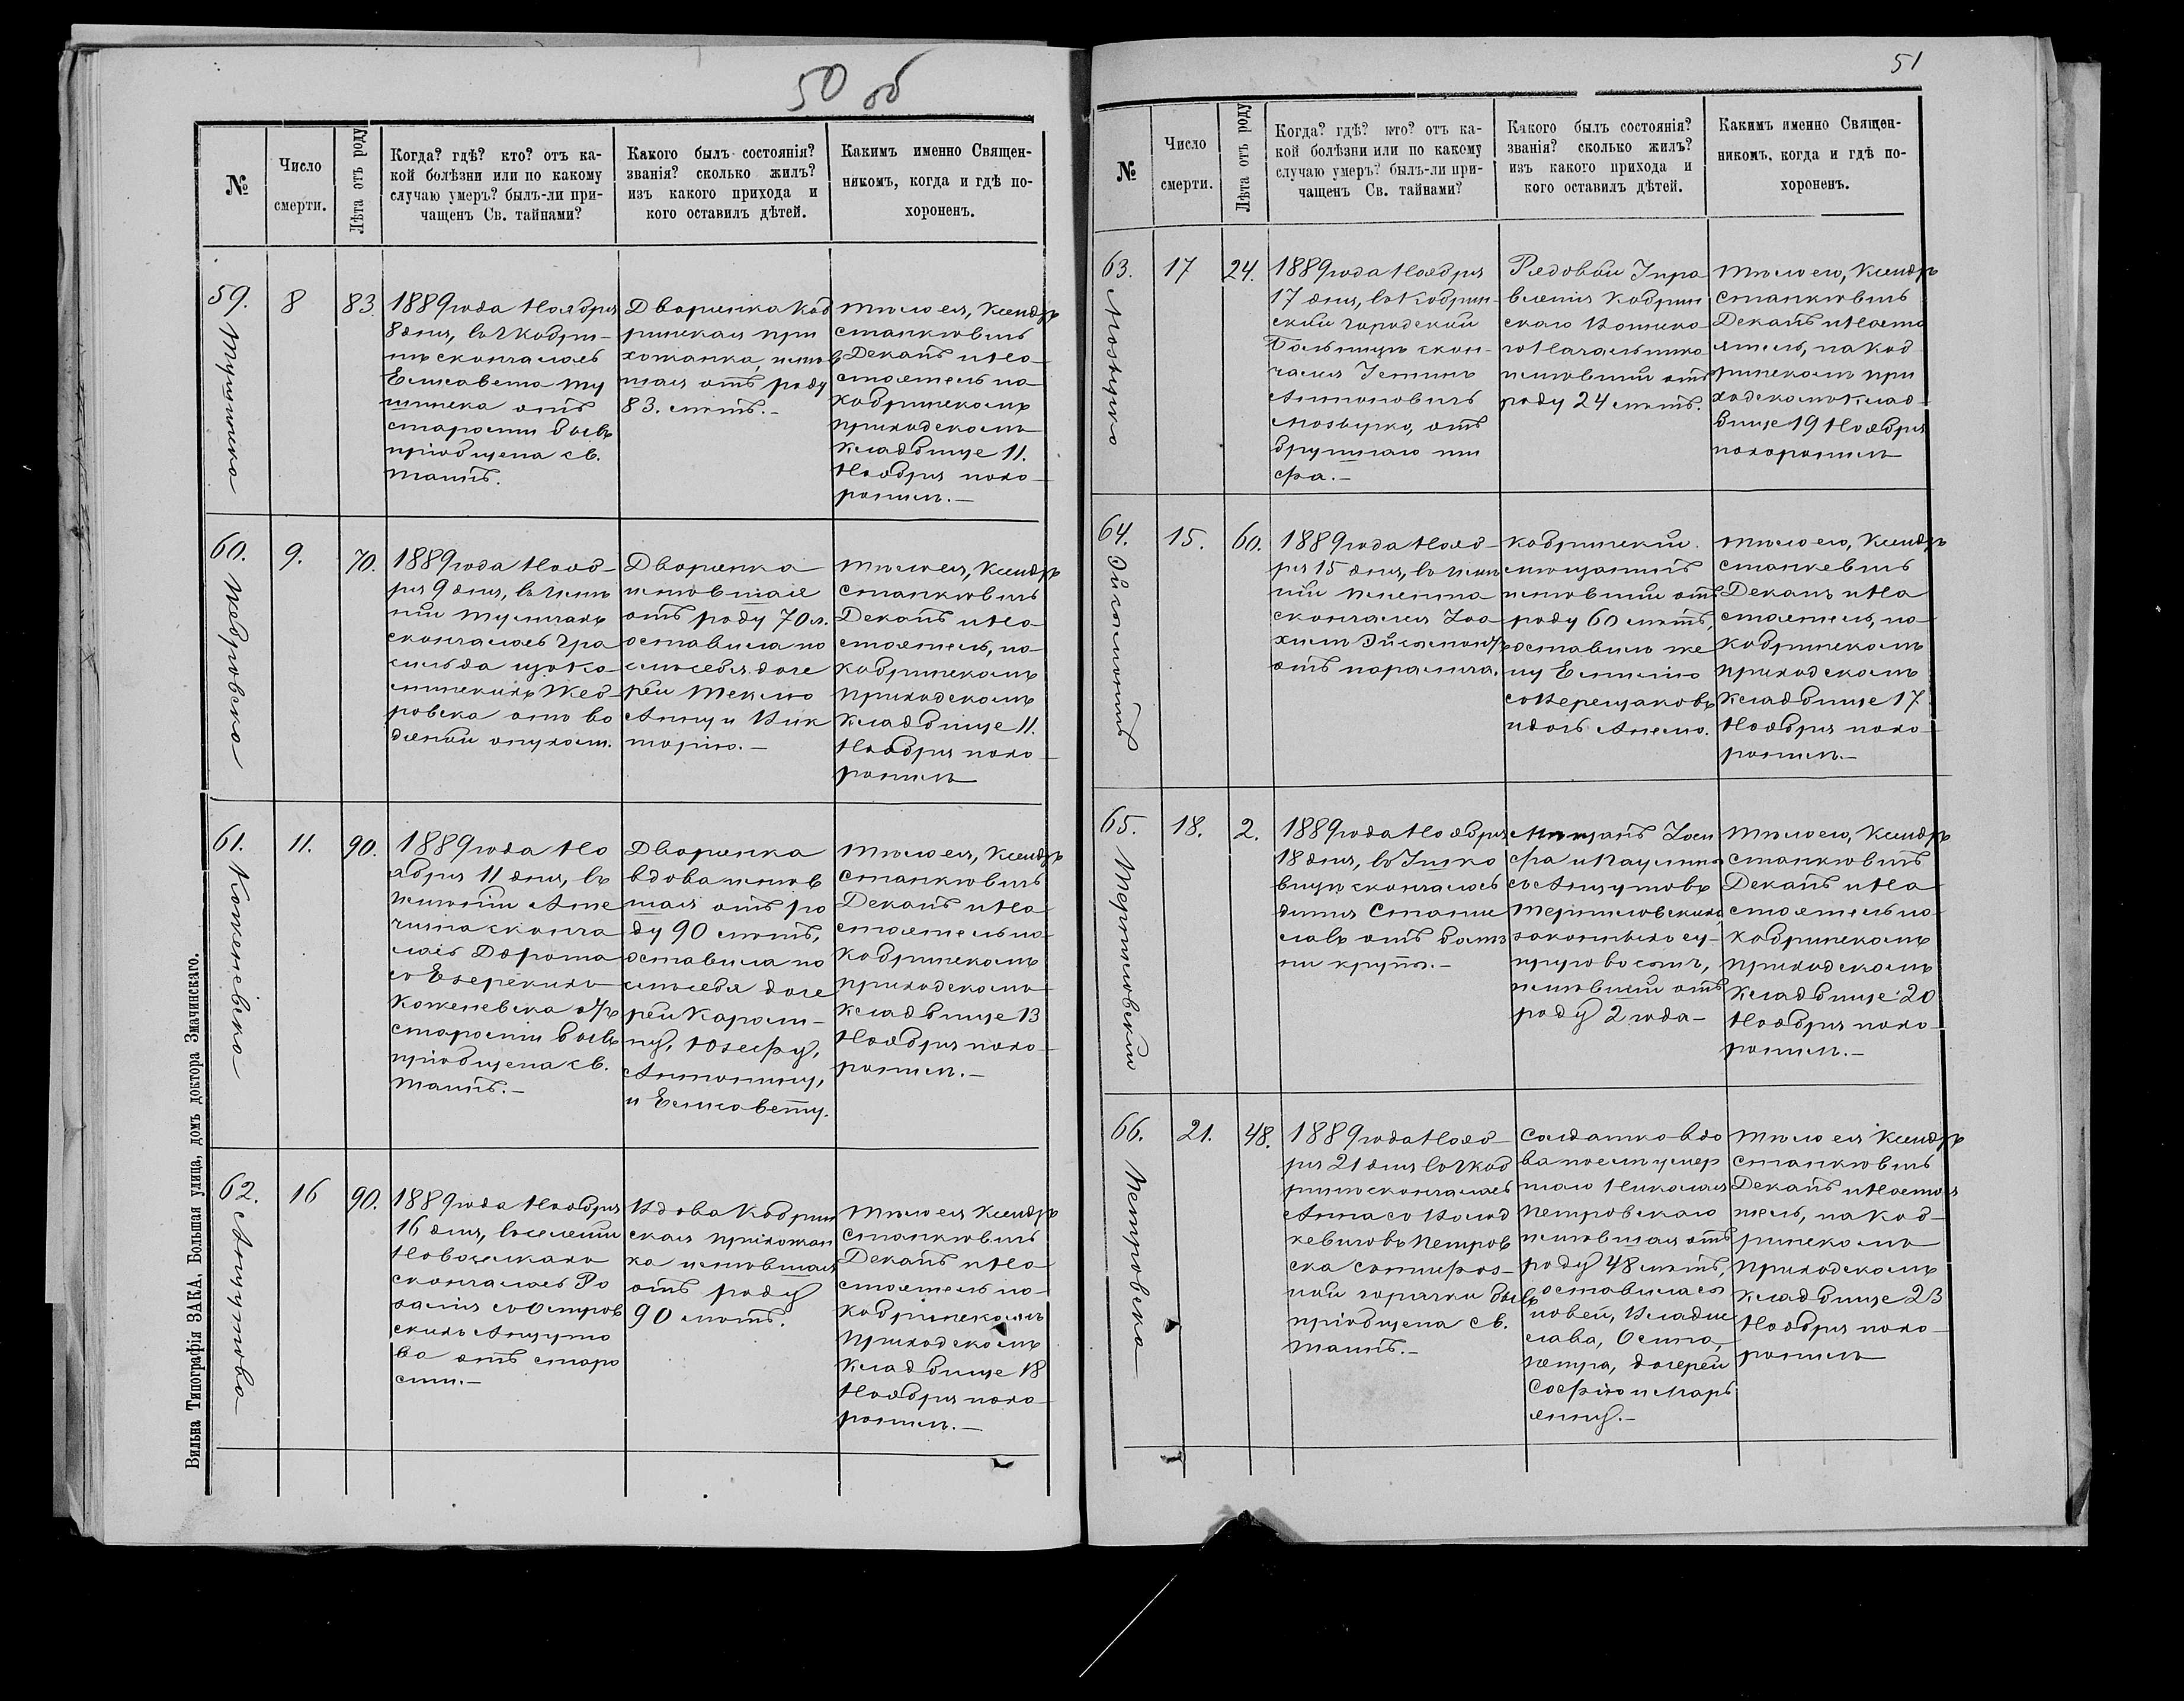 50 об
№
Число
смерти.
Лѣта отъ роду
Когда? гдѣ? кто? отъ ка-
кой болѣзни или по какому
случаю умеръ? былъ-ли при-
чащенъ Св. тайнами?
Какого былъ состоянія?
званія? сколько жилъ?
изъ какого прихода и
кого оставилъ дѣтей.
Какимъ именно Священ-
никомъ, когда и гдѣ по-
хороненъ.
59.
8
83.
1889 года Ноября
8 дня, въ г Кобри-
нѣ скончалась
Елисавета
отъ
старости бывъ
пріобщена св.
таинъ.
Дворянка Коб
ринская при
хожанка, имѣв
шая отъ роду
83. лѣтъ.-
Тѣло ея, Ксендзъ
Станкевичъ
Деканъ и На-
стоятель на
Кобринскомъ
приходскомъ
кладбище 11.
Ноября похо-
ронилъ.-
60.
9.
70.
1889 года Нояб-
ря 9 дня, въ имѣ
ніи
скончалась

ровска отъ во
дяной опухоли.
Дворянка
имѣвшая
отъ роду 70 л.
оставила по
слѣ себя доче
рей Теклю
Анну и Вик
торію.-
Тѣло ея, Ксендзъ
Станкевичъ
Деканъ и На-
стоятель, на
Кобринскомъ
приходскомъ
кладбище 11.
Ноября похо-
ронилъ
61. Коженевска
11.
90.
1889 года Но
ября 11 дня, въ
имѣніи
сконча
лась Дорота

Коженевска отъ
старости бывъ
пріобщена св.
таинъ.-
Дворянка
вдова имѣв
шая отъ ро
ду 90 лѣтъ,
оставила по
слѣ себя доче
рей Кароли-
ну, Юзефу,
Антонину,
и Елисавету.
Тѣло ея, Ксендзъ
Станкевичъ
Деканъ и На-
стоятель на
Кобринскомъ
приходскомъ
кладбище 13
Ноября похо-
ронилъ.-
62. Анцутова
16
90.
1889 года Ноября
16 дня, въ селеніи

скончалась Ро
залія съ Остров
скихъ Анцуто
ва отъ старо
сти.-
Вдова Кобрин
ская прихожан
ка имѣвшая
отъ роду
90 лѣтъ.
Тѣло ея Ксендзъ
Станкевичъ
Деканъ и На-
стоятель на
Кобринскомъ
приходскомъ
кладбище 18
Ноября похо-
ронилъ.-
Вильна Типографія ЗАКА, Большая улица, домъ доктора Змачинскаго.
51
№
Число
смерти.
Лѣта отъ роду
Когда? гдѣ? кто? отъ ка-
кой болѣзни или по какому
случаю умеръ? былъ-ли при-
чащенъ Св. тайнами?
Какого былъ состоянія?
званія? сколько жилъ?
изъ какого прихода и
кого оставилъ дѣтей.
Какимъ именно Священ-
никомъ, когда и гдѣ по-
хороненъ.
63.
17
24.
1889 года Ноября
17 дня, въ Кобрин-
ской городской
больницѣ скон-
чался Устинъ
Антоновичъ
отъ
брушнаго ти
фа.-
Рядовой Упра
вленія Кобрин
скаго Воинска
го Начальника
имѣвшій отъ
роду 24 лѣтъ.
Тѣло его, Ксендзъ
Станкевичъ
Деканъ и Насто
ятель, на Коб
ринскомъ при
ходскомъ клад-
бище 19 Ноября
похоронилъ
64.
15.
60.
1889 года Нояб-
ря 15 дня, въ имѣ
ніи
скончался Іоа
химъ
отъ паралича.
Кобринскій
мѣщанинъ
имѣвшій отъ
роду 60 лѣтъ,
оставилъ же
ну
съ Верещаковъ
и дочь
Тѣло его, Ксендзъ
Станкевичъ
Деканъ и На
стоятель, на
Кобринскомъ
приходскомъ
кладбище 17
Ноября похо-
ронилъ.-
65.
18.
2.
1889 года Ноября
18 дня, въ
скончалось
дитя Стани
славъ отъ болѣз
ни крупъ.-
Мѣщанъ Іоси
фа и Паулины
съ Анцутовъ

законныхъ су-
пруговъ сынъ,
имѣвшій отъ
роду 2 года-
Тѣло его, Ксендзъ
Станкевичъ
Деканъ и На
стоятель на
Кобринскомъ
приходскомъ
кладбище 20
Ноября похо-
ронилъ.-
66. Петровска
21.
48.
1889 года Нояб-
ря 21 дня въ г Коб
ринѣ скончалась
Анна съ
кевичовъ Петров
ска отъ тифоз-
ной горячки бывъ
пріобщена св.
таинъ.-
Солдатка вдо
ва послѣ умер
шаго Николая
Петровскаго
имѣвшая отъ
роду 48 лѣтъ,
оставила сы
новей, Владис
лава, Осипа,
Петра, дочерей
Софію и Марь
янну.-
Тѣло ея Ксендзъ
Станкевичъ
Деканъ и Настоя
тель, на Коб-
ринскомъ
приходскомъ
кладбище 23
Ноября похо-
ронилъ